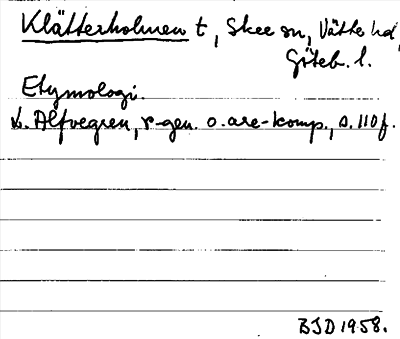 Klätterholmen t, Skee sn, Vätte hd,
Göteb. l.
Etymologi.
L. Alfvegren, r-gen. o. are-komp., s. 110 f.
BJD 1958.